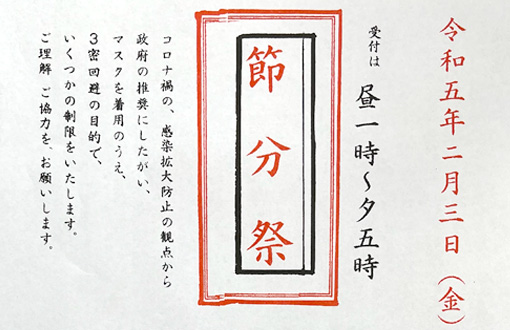 令和五年二月三日（金）
受付は 昼一時～夕五時
節分祭
コロナ禍の、感染拡大防止の観点から
政府の推奨にしたがい、
マスクを着用のうえ、
3密回避の目的で、
いくつかの制限をいたします。
ご理解 ご協力を、お願いします。